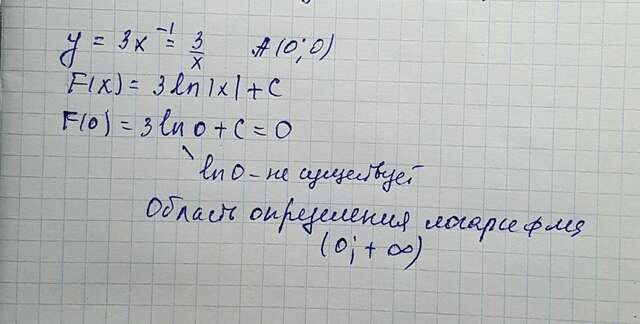 y = 3x⁻¹ = 3/x A(0; 0)
F(x) = 3 ln|x| + C
F(0) = 3 ln 0 + C = 0
ln 0 - не существует
Область определения логарифма
(0; + ∞)